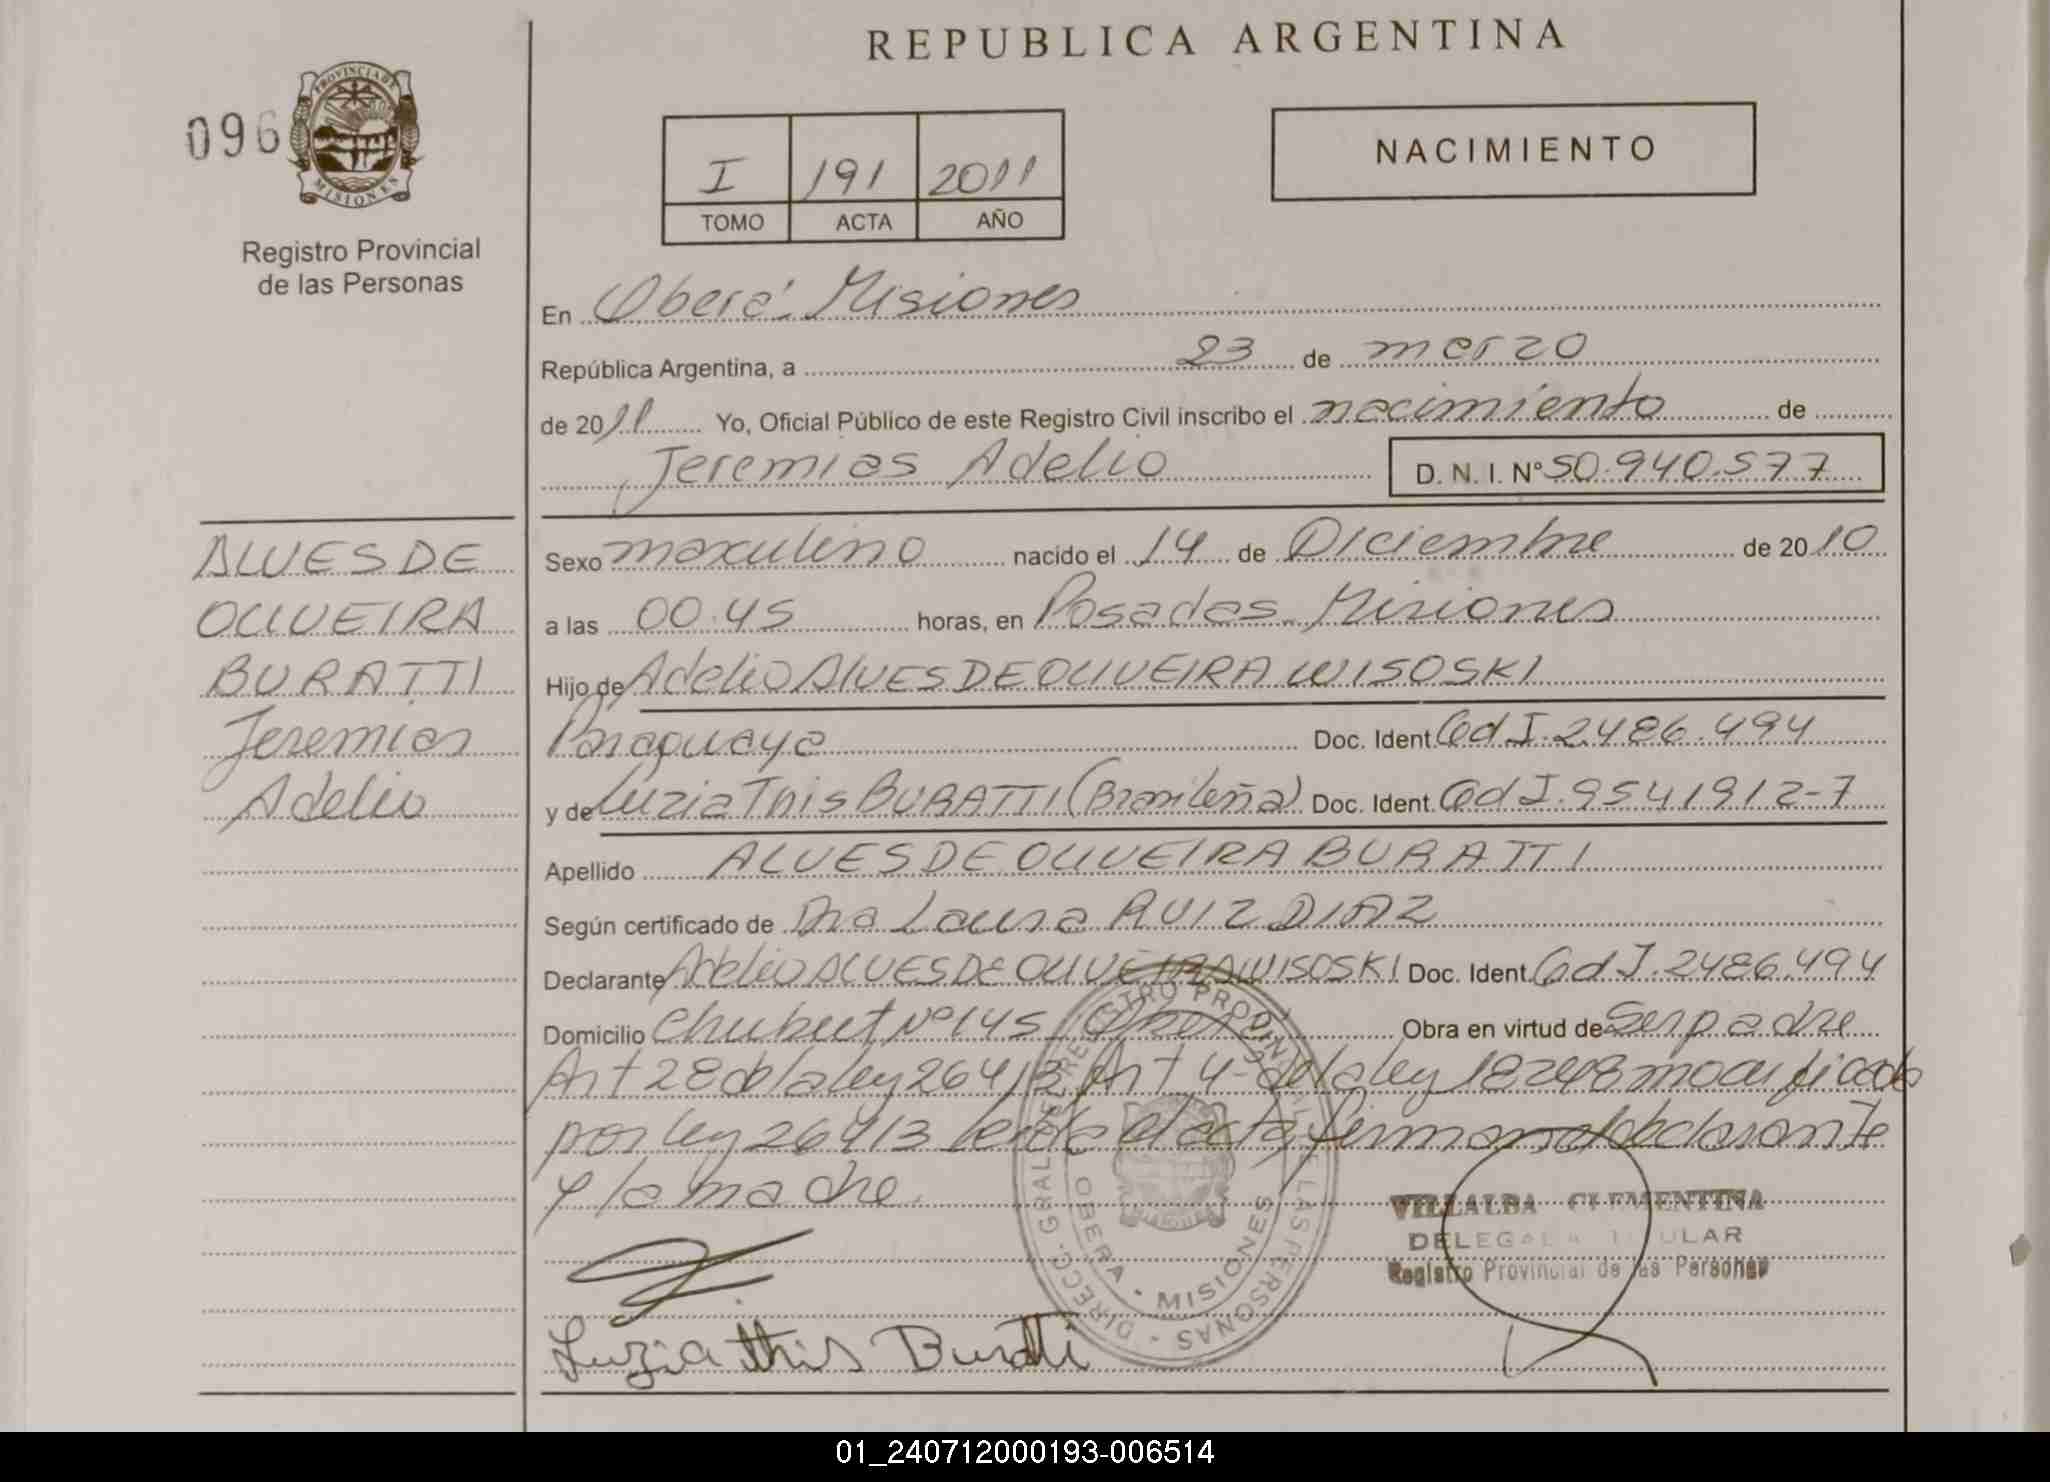 REPUBLICA ARGENTINA
096
PROVINCIA DE
MISIONES
Registro Provincial
de las Personas
I 191 2011
TOMO ACTA AÑO
NACIMIENTO
En Oberá. Misiones
República Argentina, a 23 de marzo
de 2011 Yo, Oficial Público de este Registro Civil inscribo el nacimiento de
Jeremias Adelio D. N. I. Nº 50.940.577
ALVES DE
OLIVEIRA
BURATTI
Jeremias
Adelio
Sexo masculino nacido el 14 de Diciembre de 2010
a las 00.45 horas, en Posadas. Misiones
Hijo de Adelio ALVES DE OLIVEIRA WISOSKI
Paraguaya Doc. Ident. Ced I. 2486.494
y de Luzia This BURATTI (Brasileña) Doc. Ident. Ced I. 9541912-7
Apellido ALVES DE OLIVEIRA BURATTI
Según certificado de Dra Laura RUIZ DIAZ
Declarante Adelio ALVES DE OLIVEIRA WISOSKI Doc. Ident. Ced I. 2486.494
Domicilio Chubut Nº 145 Oberá Obra en virtud de Ser padre
Art 28 de la ley 26413 Art 4- de la ley 18248 modificado
por ley 26413 Leida el acta firman el declarante
y la madre.
DIRECC. GRAL. DEL REGISTRO PROVINCIAL DE LAS PERSONAS
OBERA • MISIONES
VILLALBA CLEMENTINA
DELEGADA TITULAR
Registro Provincial de las Personas
Luzia this Buratti
01_240712000193-006514